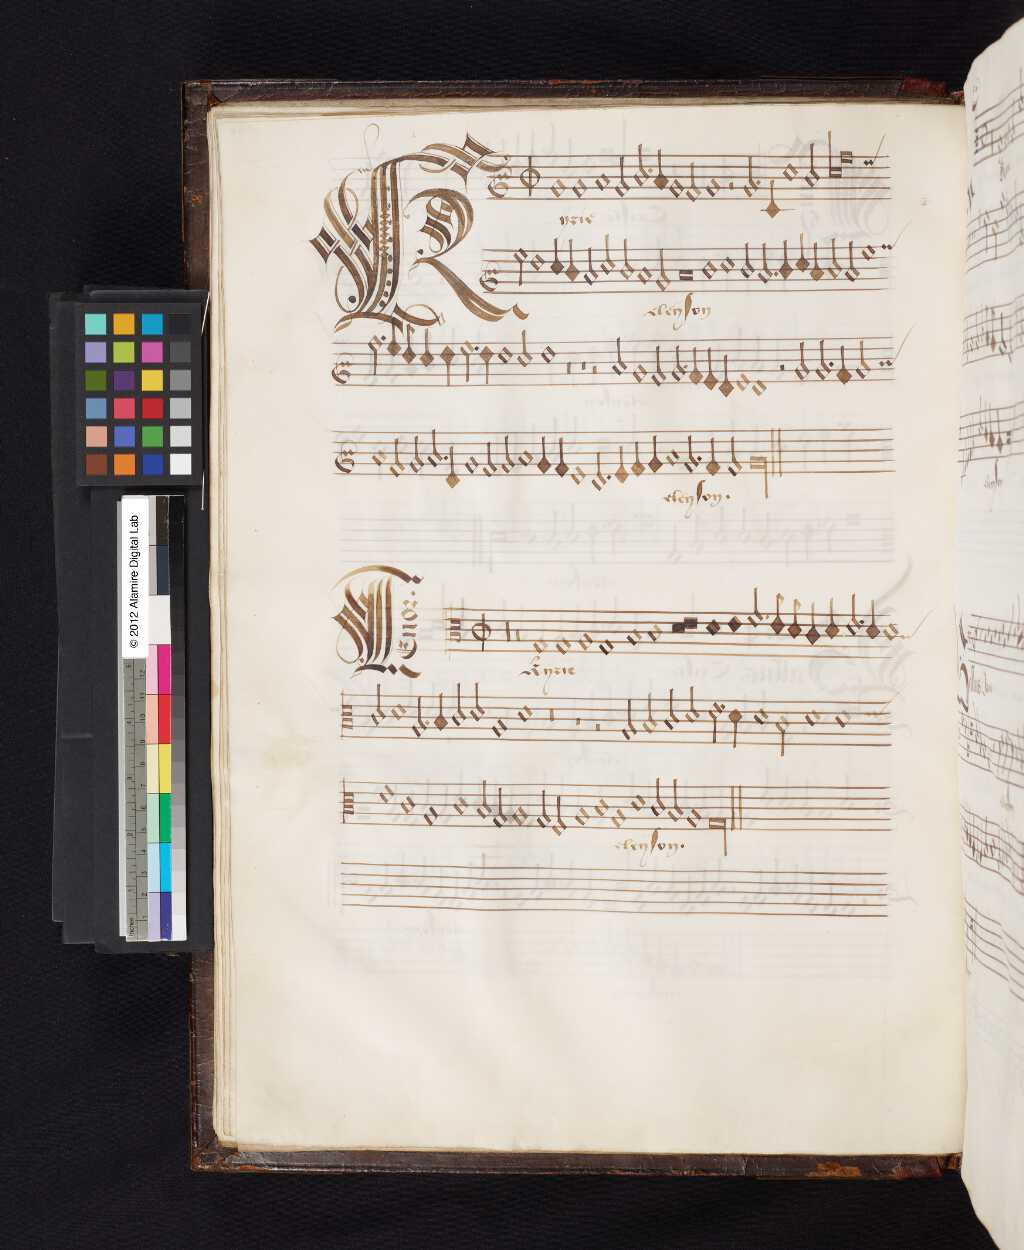 K
yrie
eleyson
eleyson.
Tenor.
Kyrie
eleyson.
© 2012 Alamire Digital Lab